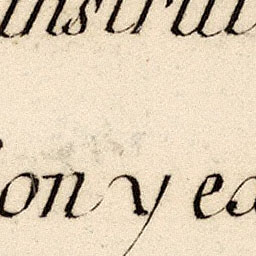 instru
ion y ea